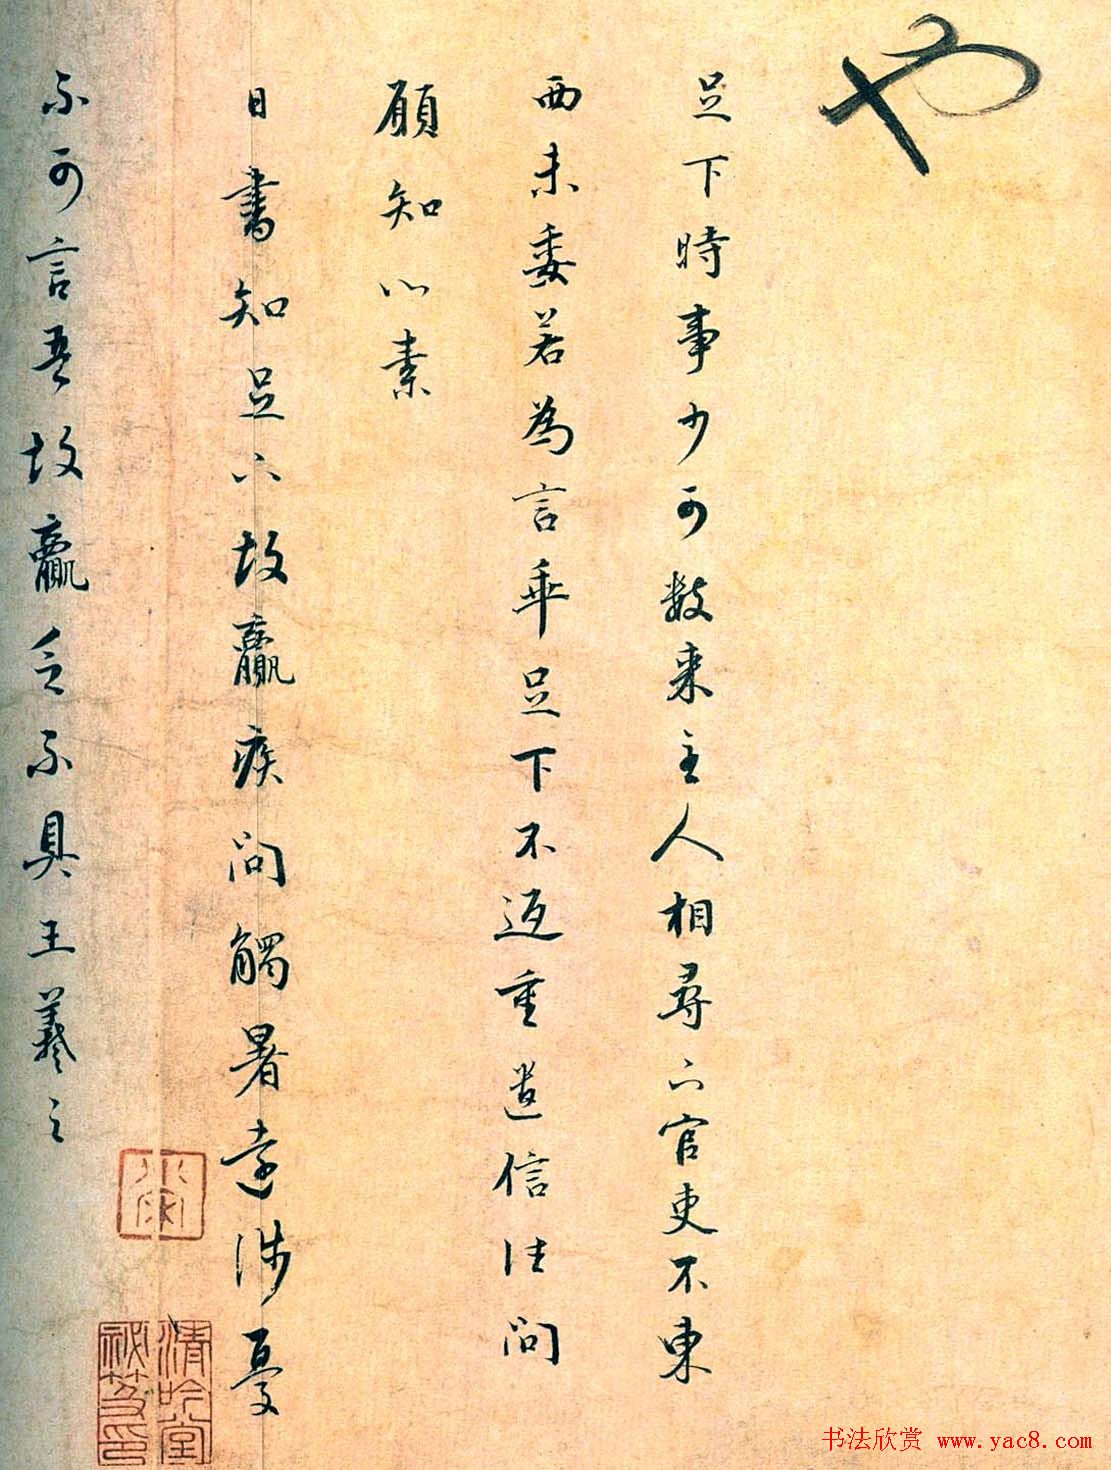 也
足下時事少可數来主人相尋下官吏不東
西未委若為言乖足下不返重遣信往問
願知心素
日書知足下故羸疾問觸暑遠涉憂
不可言吾故羸乏不具王羲之
清吟堂
祕笈印
书法欣赏 www.yac8.com